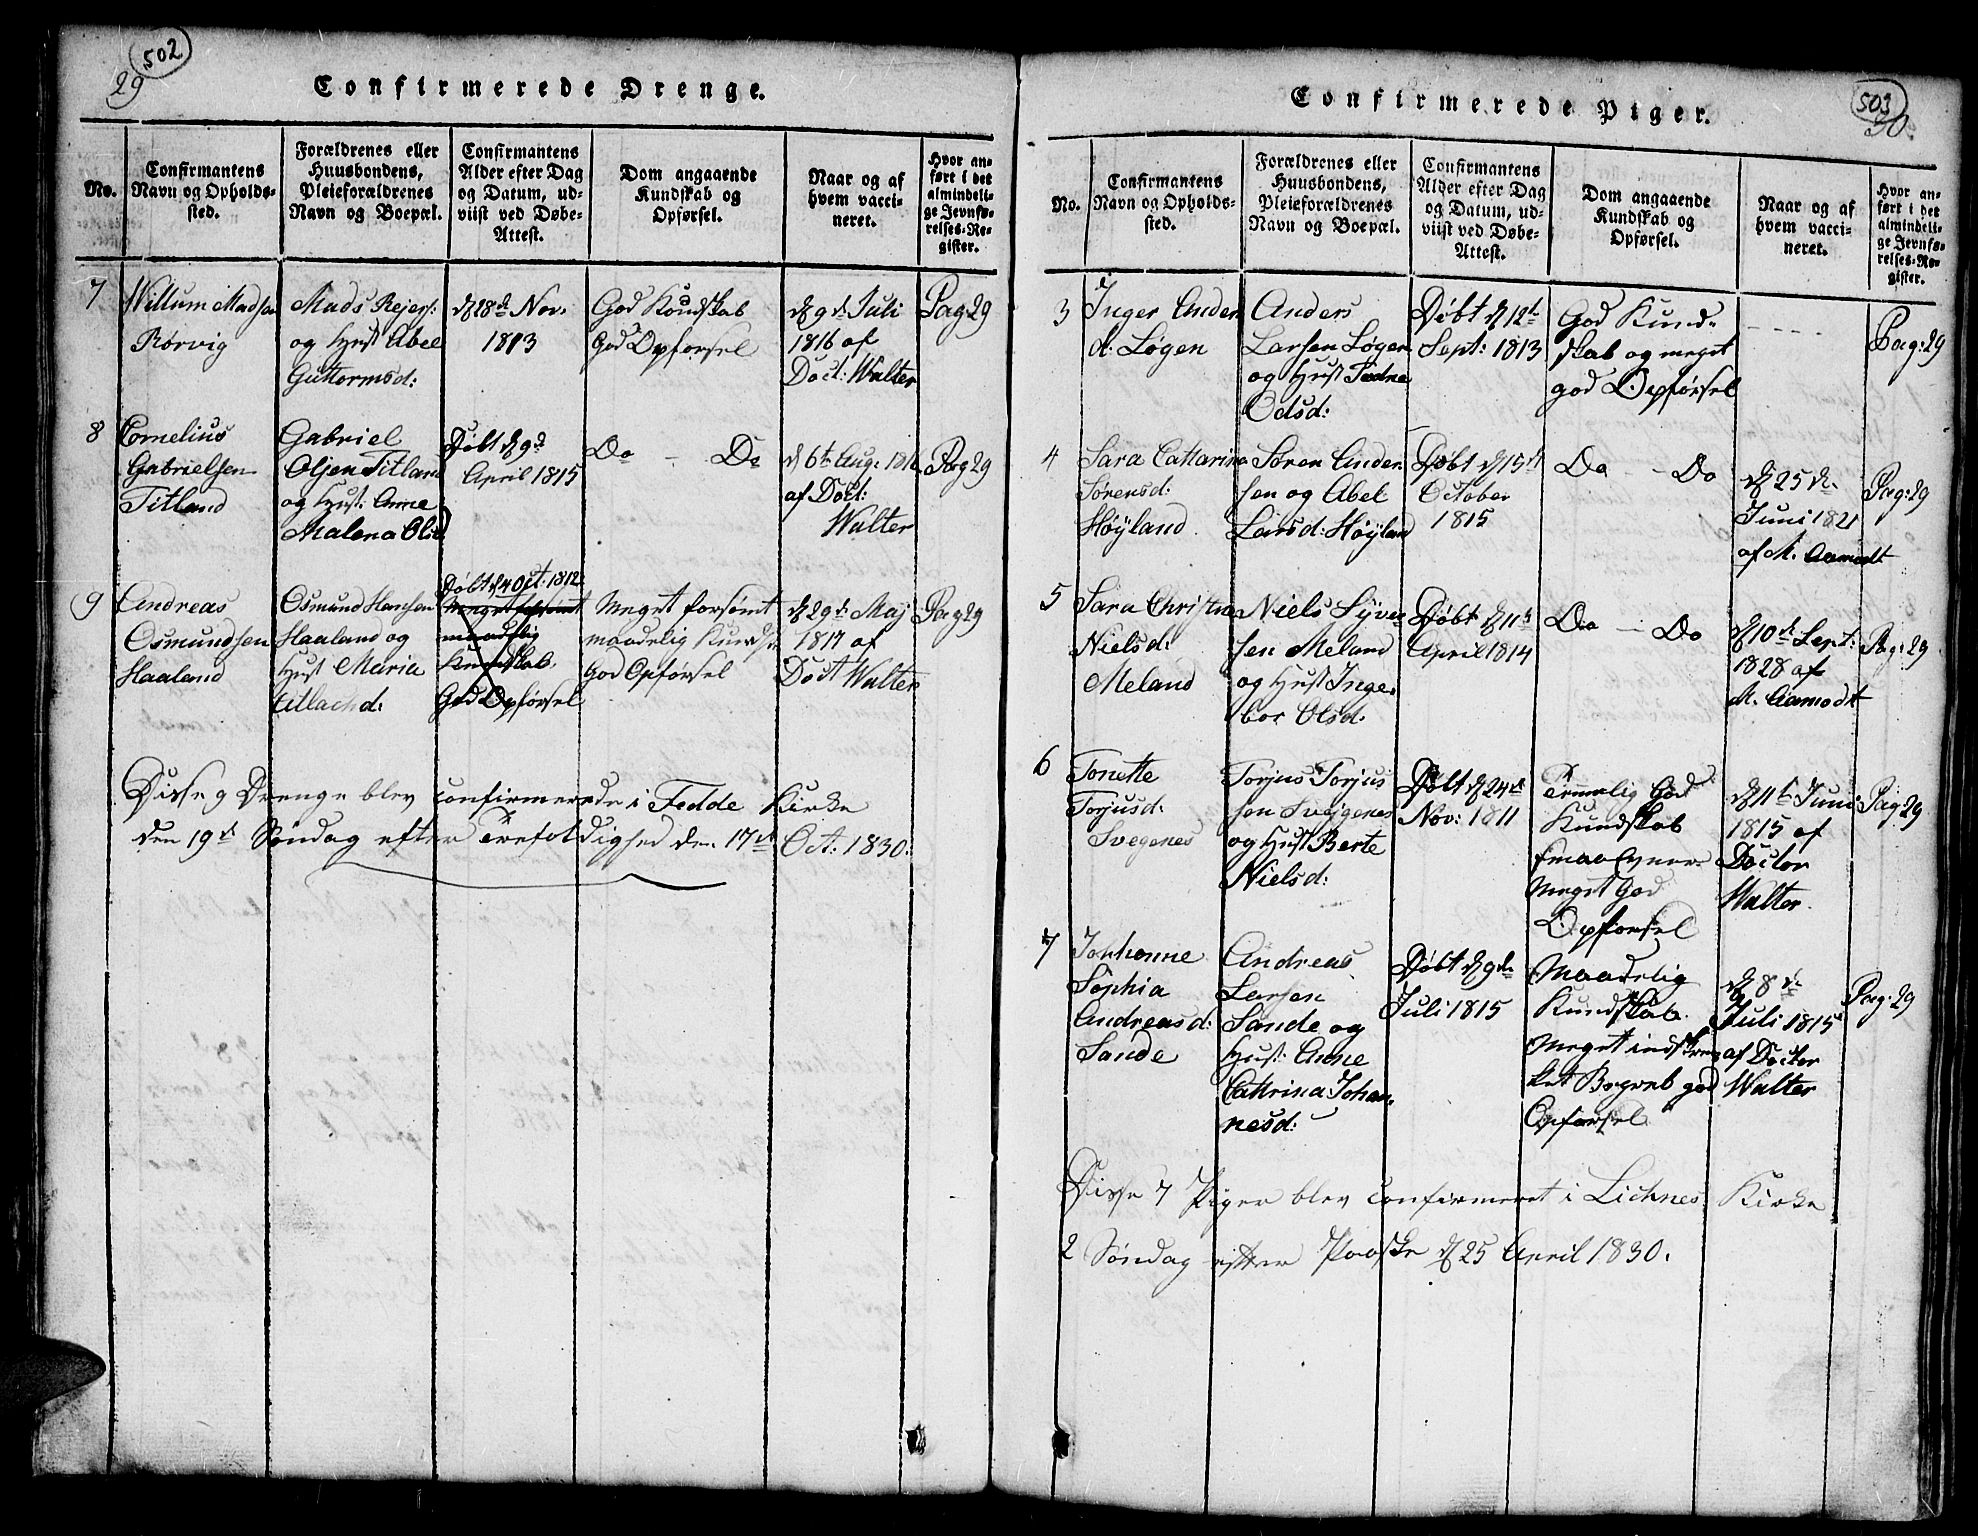 502
29
Confirmerede Drenge.
No.
Confirmantens
Navn og Opholds-
sted.
Forældrenes eller
Huusbondens,
Pleieforældrenes
Navn og Boepæl.
Confirmantens
Alder efter Dag
og Datum, ud-
viist ved Døbe-
Attest.
Dom angaaende
Kundskab og
Opførsel.
Naar og af
hvem vacci-
neret.
Hvor an-
ført i det
almindeli-
ge Jevnfø-
relses-Re-
gister.
7
Willum Madsen
Rørvig
Mads Rejers:
og Hust Abel
Guttormsd:
d 18d Nov.
1813
God Kundskab
God Opførsel
d 9d Juli
1816 af
Doct: Walter
Pag 29
8
Cornelius
Gabrielsen
Titland
Gabriel
Olsen Titland
og Hust: Anne
Malena Olsd
Døbt d 9d
April 1815
Do — Do
d 6t Aug: 1816
af Doct:
Walter
Pag 29
9
Andreas
Osmundsen
Haaland
Osmund Hansen
Haaland og
Hust Maria
Døbt d 4 Oct. 1812
Meget forsømt
maadelig
Kundskab.
God Opførsel
Meget forsømt
maadelig Kundsk
God Opførsel
d 29d Maj
1817 af
Doct Walter
Pag 29
Disse 9 Drenge blev confirmerede i Fedde Kirke
den 19d Søndag efter Trefoldighed den 17d Oct: 1830.
503
30.
Confirmerede Piger.
No.
Confirmantens
Navn og Opholds-
sted.
Forældrenes eller
Huusbondens,
Pleieforældrenes
Navn og Boepæl.
Confirmantens
Alder efter Dag
og Datum, ud-
viist ved Døbe-
Attest.
Dom angaaende
Kundskab og
Opførsel.
Naar og af
hvem vacci-
neret.
Hvor an-
ført i det
almindeli-
ge Jevnfø-
relses-Re-
gister.
3
Inger Anders
d: Løgen
Anders
Larsen Løgen
og Hust Tadne
Odsd:
Døbt d 12t
Sept: 1813
God Kund-
skab og meget
god Opførsel
- - - -
Pag: 29
4
Sara Catharina
Sørensd:
Høyland
Søren Ander-
sen og Abel
Larsd: Høyland
Døbt d 15d
October
1815
Do — Do
d 25d
Juni 1821
af M. Aamodt
Pag: 29
5
Sara Christina
Nielsd:
Meland
Niels Syver-
sen Meland
og Hust Inge-
bor Olsd:
Døbt d 11t
April 1814
Do — Do
d 10d Sept:
1828 af
M. Aamodt
Pag: 29
6
Tonette
Torjusd:
Svegenes
Torjus Torjus
sen Svegenes
og Hust Berte
Nielsd:
Døbt d 24d
Nov: 1811
Temmelig God
Kundskab
smaa Evner
Meget God
Opførsel
d 11t Juni
1815 af
Doctor
Walter
Pag: 29
7
Johanne
Sophia
Andreasd:
Sande
Andreas
Larsen
Sande og
Hust: Anne
Cathrina Johan-
nesd:
Døbt d 9de
Juli 1815
Maadelig
Kundskab.
Meget indskræn
ket Begreb god
Opførsel
d 8d
Juli 1815
af Doctor
Walter
Pag: 29
Disse 7 Piger blev confirmeret i Lichnes Kirke
2 Søndag efter Paaske d 25 April 1830.